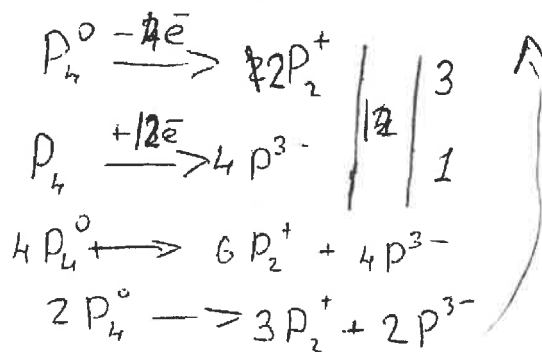 P₄⁰ −4ē → 2P₂⁺ | 12 | 3
P₄ +12ē → 4P³⁻ | 1
4P₄⁰ → 6P₂⁺ + 4P³⁻
2P₄⁰ → 3P₂⁺ + 2P³⁻